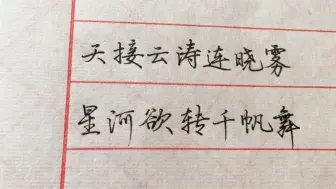 天接云涛连晓雾
星河欲转千帆舞